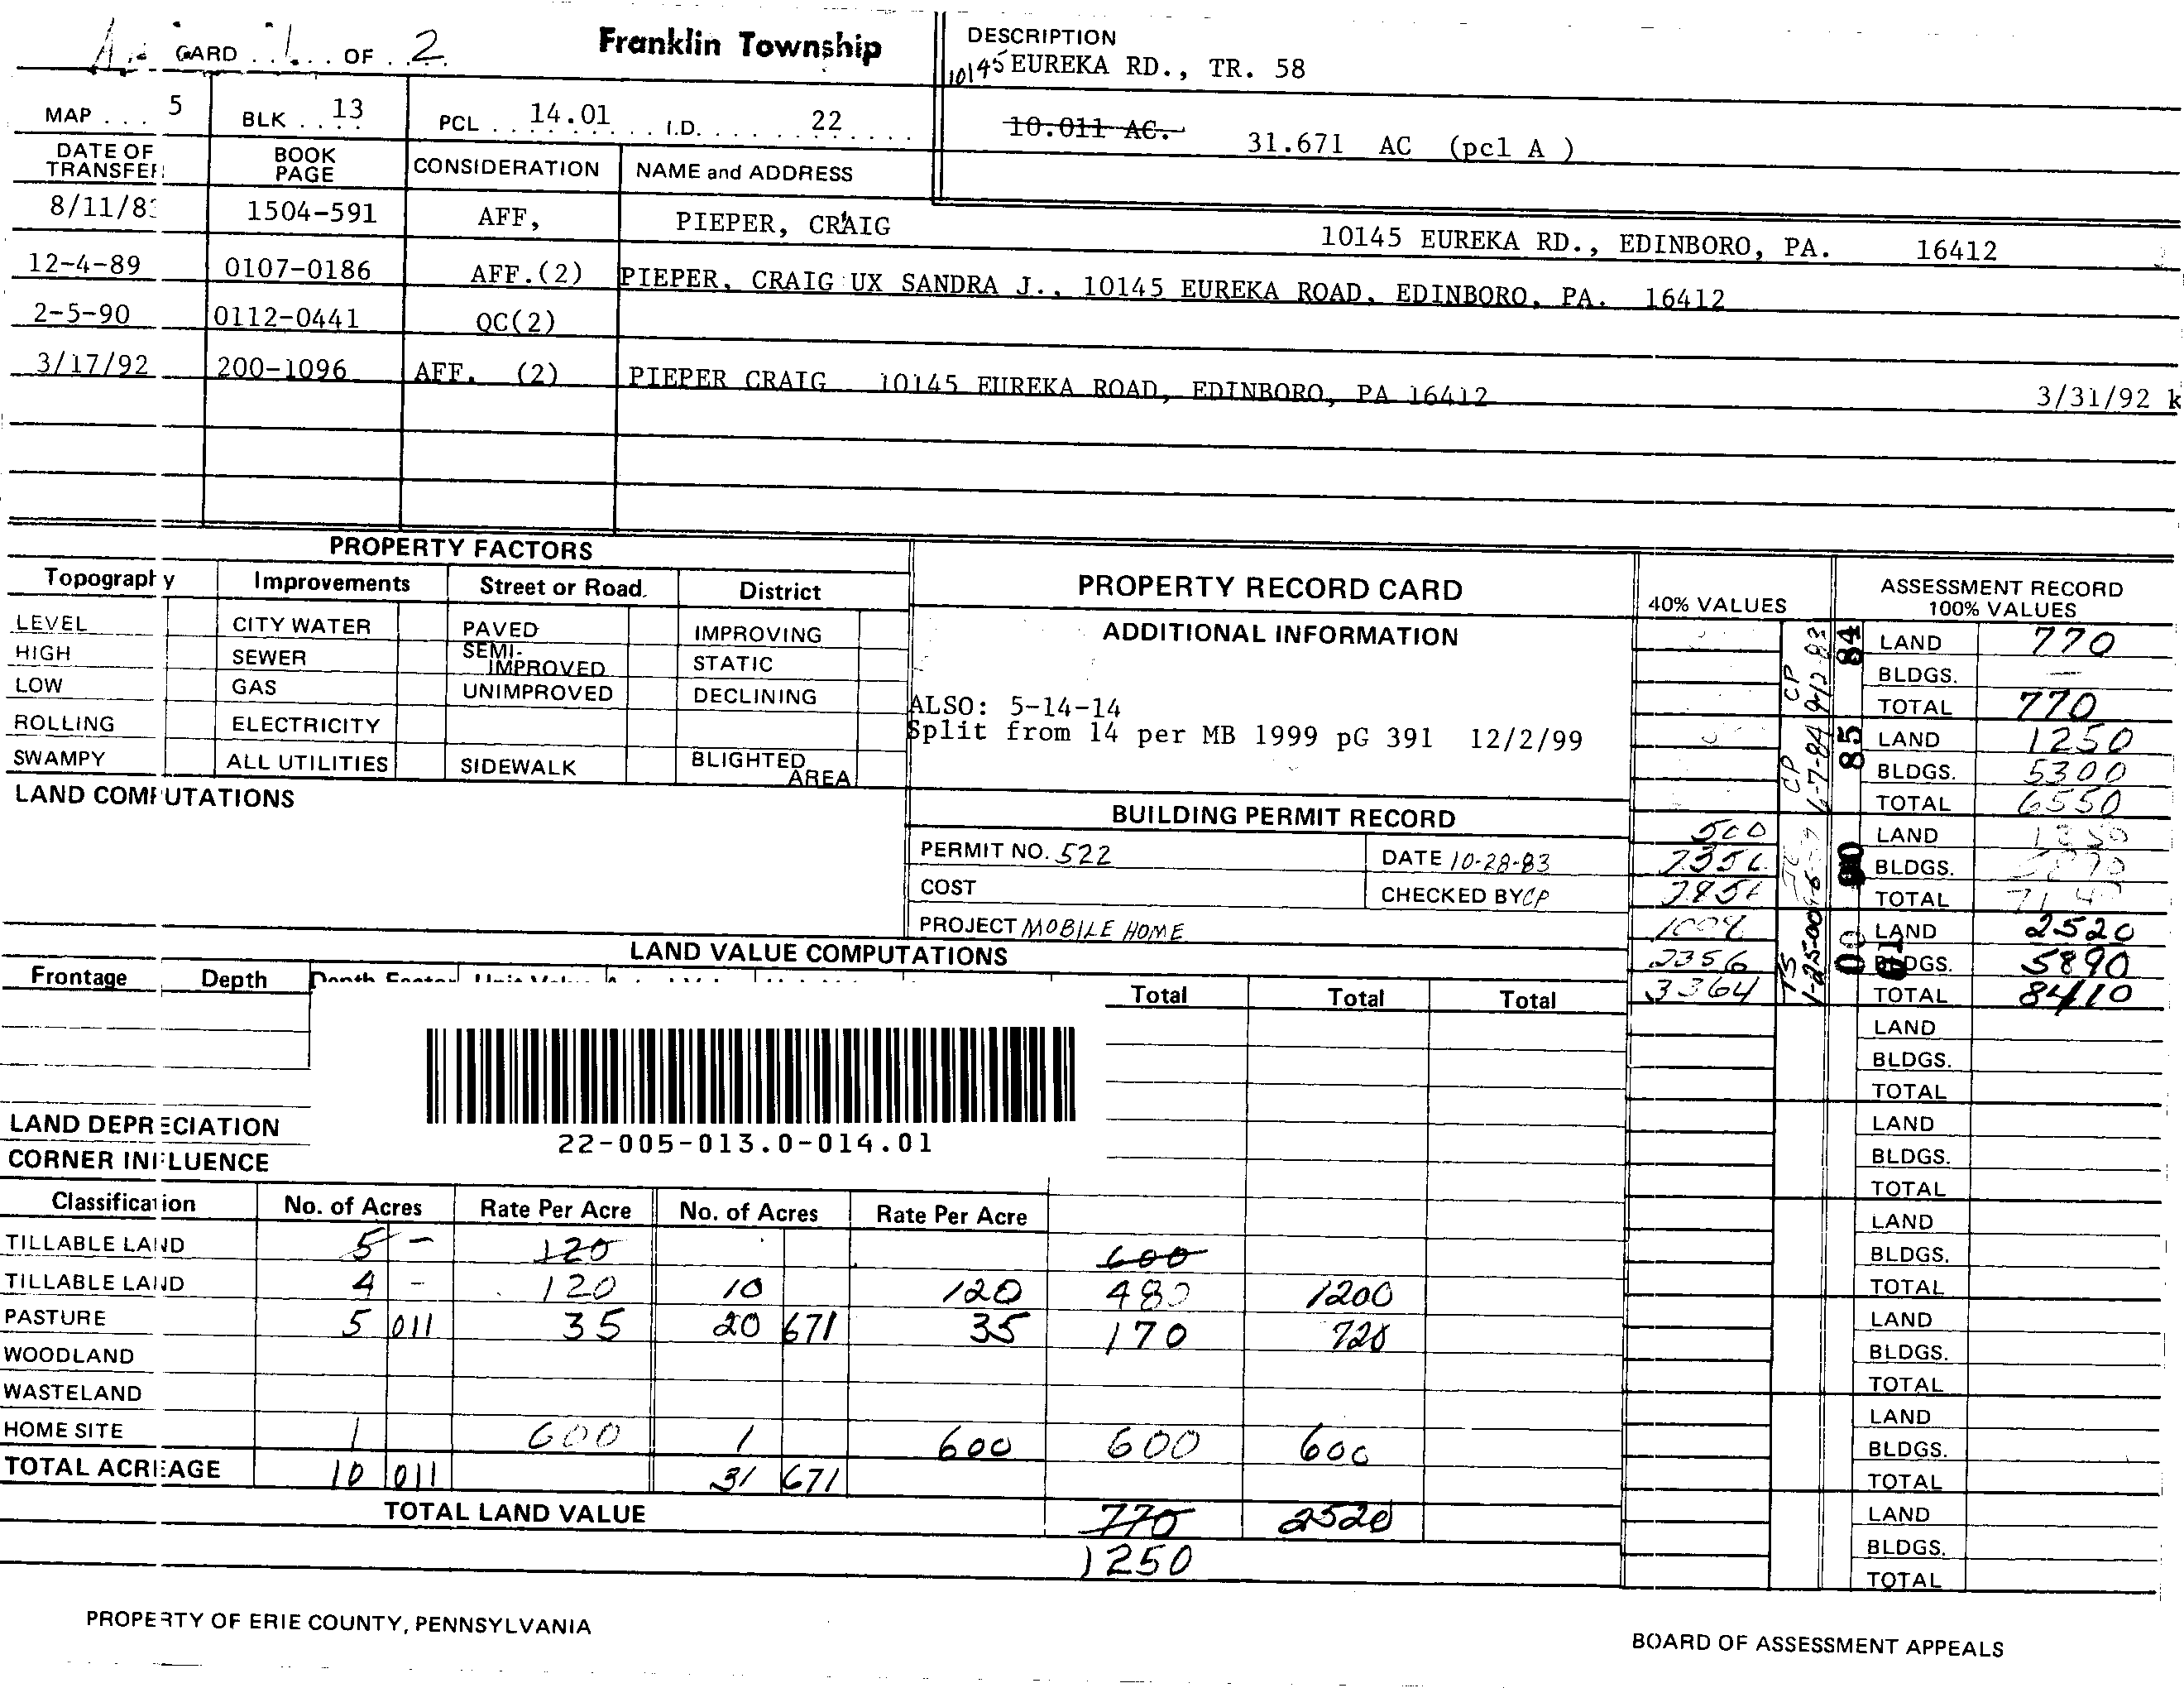 CARD . . 1 . . . OF . . 2 .
Franklin Township
DESCRIPTION
10145 EUREKA RD., TR. 58
MAP . . . 5 BLK . . 13 PCL . . 14.01 . . I.D. . . . . . 22 . . . .
10.011 AC. 31.671 AC (pcl A )
DATE OF TRANSFER BOOK PAGE CONSIDERATION NAME and ADDRESS
8/11/83 1504-591 AFF, PIEPER, CRAIG 10145 EUREKA RD., EDINBORO, PA. 16412
12-4-89 0107-0186 AFF.(2) PIEPER, CRAIG UX SANDRA J., 10145 EUREKA ROAD, EDINBORO, PA. 16412
2-5-90 0112-0441 QC(2)
3/17/92 200-1096 AFF. (2) PIEPER CRAIG 10145 EUREKA ROAD, EDINBORO, PA 16412 3/31/92 k
PROPERTY FACTORS
Topography Improvements Street or Road. District
LEVEL CITY WATER PAVED IMPROVING
HIGH SEWER SEMI-IMPROVED STATIC
LOW GAS UNIMPROVED DECLINING
ROLLING ELECTRICITY
SWAMPY ALL UTILITIES SIDEWALK BLIGHTED AREA
PROPERTY RECORD CARD
ADDITIONAL INFORMATION
ALSO: 5-14-14
Split from 14 per MB 1999 pG 391 12/2/99
BUILDING PERMIT RECORD
PERMIT NO. 522 DATE 10-28-83
COST CHECKED BY CP
PROJECT MOBILE HOME
40% VALUES
500
2356
2856
1008
2356
3364
CP 9-12-83
CP 6-7-84
TS 1-25-00
ASSESSMENT RECORD
100% VALUES
84 LAND 770
BLDGS. —
TOTAL 770
85 LAND 1250
BLDGS. 5300
TOTAL 6550
90 LAND 1250
BLDGS. 5890
TOTAL 7140
00 01 LAND 2520
BLDGS. 5890
TOTAL 8410
LAND
BLDGS.
TOTAL
LAND
BLDGS.
TOTAL
LAND
BLDGS.
TOTAL
LAND
BLDGS.
TOTAL
LAND
BLDGS.
TOTAL
LAND
BLDGS.
TOTAL
LAND COMPUTATIONS
LAND VALUE COMPUTATIONS
Frontage Depth Depth Factor Unit Value Total Total Total
22-005-013.0-014.01
LAND DEPRECIATION
CORNER INFLUENCE
Classification No. of Acres Rate Per Acre No. of Acres Rate Per Acre
TILLABLE LAND 5 - 120 600
TILLABLE LAND 4 - 120 10 120 480 1200
PASTURE 5 011 35 20 671 35 170 720
WOODLAND
WASTELAND
HOME SITE 1 600 1 600 600 600
TOTAL ACREAGE 10 011 31 671
TOTAL LAND VALUE 770 2520
1250
PROPERTY OF ERIE COUNTY, PENNSYLVANIA
BOARD OF ASSESSMENT APPEALS